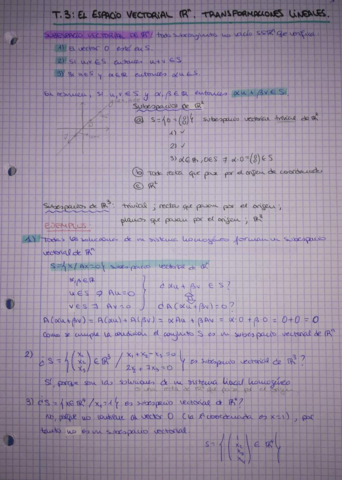 T.3: EL ESPACIO VECTORIAL ℝⁿ. TRANSFORMACIONES LINEALES.
SUBESPACIO VECTORIAL DE ℝⁿ: todo subconjunto no vacío S⊆ℝⁿ que verifica
1) El vector 0 está en S.
2) Si u,v∈S entonces u+v∈S
3) Si u∈S y α∈ℝ entonces αu∈S.
En resumen, si u,v∈S y α,β∈ℝ entonces αu+βv∈S.
Subespacios de ℝ²
ⓐ S={0=(0 0)} subespacio vectorial trivial de ℝ²
1) ✓
2) ✓
3) α∈ℝ, 0∈S → α·0=(0 0)∈S
ⓑ Toda recta que pase por el origen de coordenadas
ⓒ ℝ²
Subespacios de ℝ³: trivial, rectas que pasan por el origen,
planos que pasan por el origen, ℝ³
EJEMPLOS
1) Todas las soluciones de un sistema homogéneo forman un subespacio
vectorial de ℝⁿ
S={x/Ax=0} subespacio vectorial de ℝⁿ
α,β∈ℝ
u∈S → Au=0
v∈S → Av=0
¿αu+βv∈S?
¿A(αu+βv)=0?
A(αu+βv)=A(αu)+A(βv)=αAu+βAv=α·0+β·0=0+0=0
Como se cumple la condición el conjunto S es un subespacio vectorial de ℝⁿ
2) ¿S={(x₁ x₂ x₃)∈ℝ³ / x₁+x₂-x₃=0 es subespacio vectorial de ℝ³?
Sí, porque son las soluciones de un sistema lineal homogéneo
3) ¿S={x∈ℝⁿ/x₁=1} es subespacio vectorial de ℝⁿ?
No, porque no contiene al vector 0 (la 1ª coordenada es x=1), por
tanto no es un subespacio vectorial.
S={(1 x₂ xₙ)∈ℝⁿ}